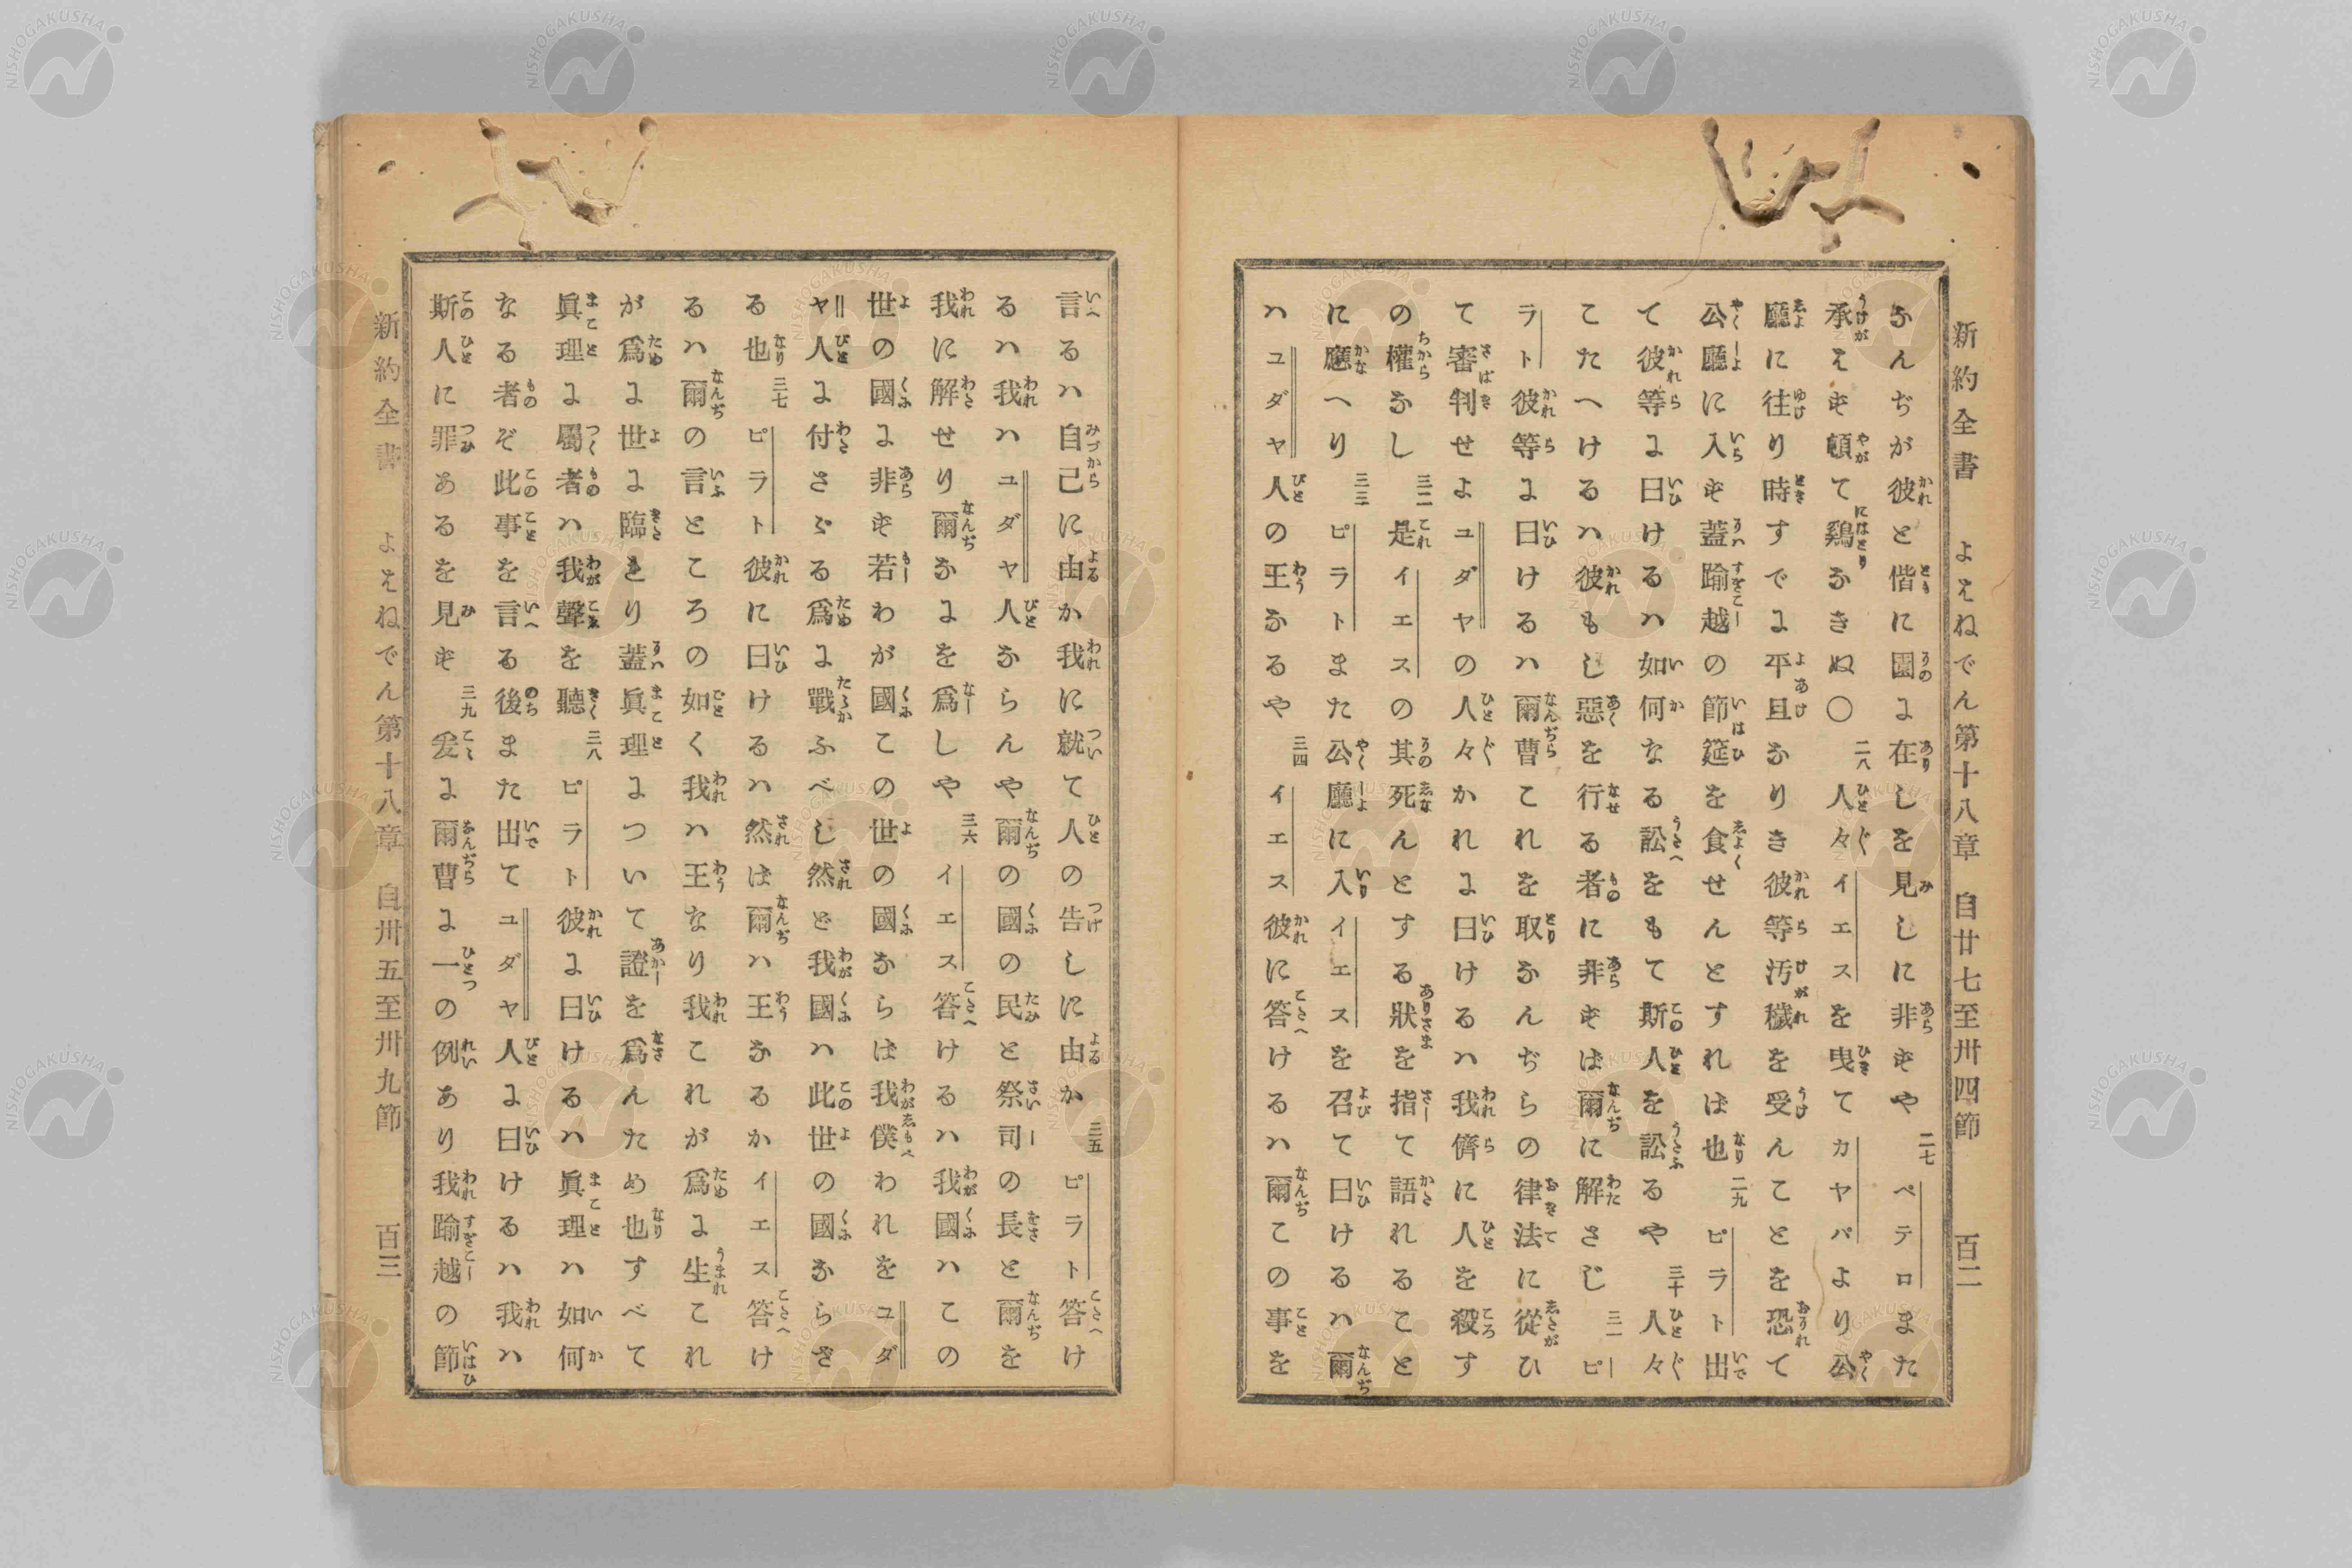 新約全書　よはねでん第十八章　自廿七至卅四節　百二
なんぢが彼と偕に園に在しを見しに非ずや 二七 ペテロまた
承はず頓て鷄なきぬ〇 二八 人々イエスを曳てカヤパより公
廳に往り時すでに平旦なりき彼等汚穢を受んことを恐て
公廳に入ず蓋踰越の節筵を食せんとすれば也 二九 ピラト出
て彼等に曰けるハ如何なる訟をもて斯人を訟るや 三十 人々
こたへけるハ彼もし惡を行る者に非ずば爾に解さじ 三一 ピ
ラト彼等に曰けるハ爾曹これを取なんぢらの律法に從ひ
て審判せよユダヤの人々かれに曰けるハ我儕に人を殺す
の權なし 三二 是イエスの其死んとする狀を指て語れること
に應へり 三三 ピラトまた公廳に入イエスを召て曰けるハ爾
ハユダヤ人の王なるや 三四 イエス彼に答けるハ爾この事を
言るハ自己に由か我に就て人の告しに由か 三五 ピラト答け
るハ我ハユダヤ人ならんや爾の國の民と祭司の長と爾を
我に解せり爾なにを爲しや 三六 イエス答けるハ我國ハこの
世の國に非ず若わが國この世の國ならば我僕われをユダ
ヤ人に付さゞる爲に戰ふべし然ど我國ハ此世の國ならざ
る也 三七 ピラト彼に曰けるハ然ば爾ハ王なるかイエス答け
るハ爾の言ところの如く我ハ王なり我これが爲に生これ
が爲に世に臨れり蓋眞理について證を爲んため也すべて
眞理に屬者ハ我聲を聽 三八 ピラト彼に曰けるハ眞理ハ如何
なる者ぞ此事を言る後また出てユダヤ人に曰けるハ我ハ
斯人に罪あるを見ず 三九 爰に爾曹に一の例あり我踰越の節
新約全書　よはねでん第十八章　自卅五至卅九節　百三